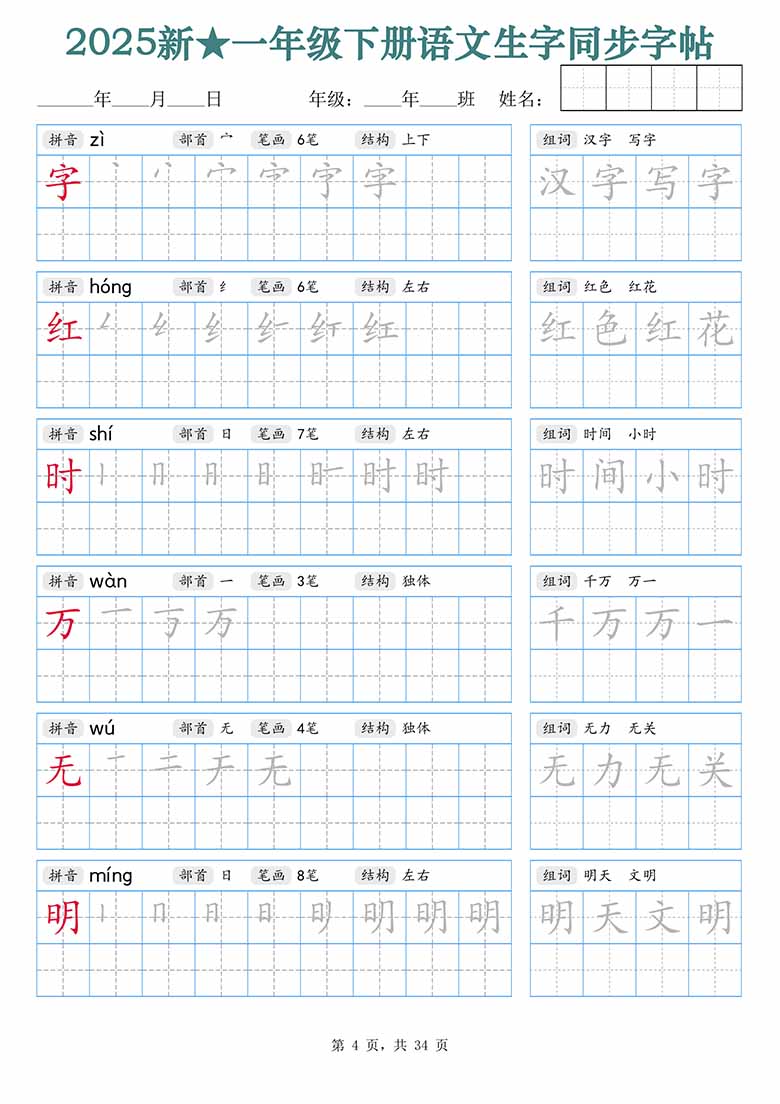 2025新★一年级下册语文生字同步字帖
______年____月____日 年级：____年____班 姓名：
拼音 zì 部首 宀 笔画 6笔 结构 上下 组词 汉字 写字
字 丶 丷 宀 宁 字 汉 字 写 字
拼音 hóng 部首 纟 笔画 6笔 结构 左右 组词 红色 红花
红 纟 红 红 色 红 花
拼音 shí 部首 日 笔画 7笔 结构 左右 组词 时间 小时
时 丨 冂 日 日 时 时 时 间 小 时
拼音 wàn 部首 一 笔画 3笔 结构 独体 组词 千万 万一
万 一 丂 万 千 万 万 一
拼音 wú 部首 无 笔画 4笔 结构 独体 组词 无力 无关
无 一 二 无 无 力 无 关
拼音 míng 部首 日 笔画 8笔 结构 左右 组词 明天 文明
明 丨 冂 日 日 明 明 明 明 天 文 明
第 4 页，共 34 页